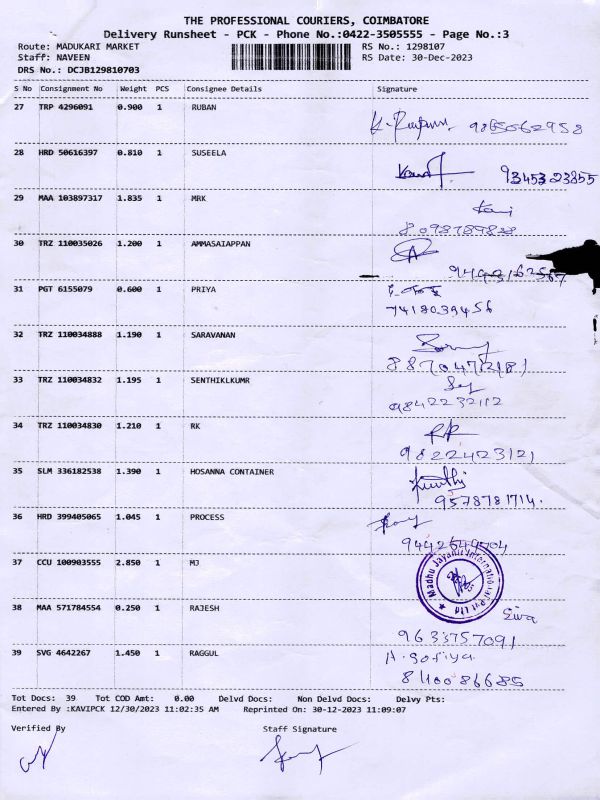 THE PROFESSIONAL COURIERS, COIMBATORE
Delivery Runsheet - PCK - Phone No.:0422-3505555 - Page No.:3
Route: MADUKARI MARKET RS No.: 1298107
Staff: NAVEEN RS Date: 30-Dec-2023
DRS No.: DCJB129810703
S No Consignment No Weight PCS Consignee Details Signature
27 TRP 4296091 0.900 1 RUBAN
9865062958
28 HRD 50616397 0.810 1 SUSEELA
9345323855
29 MAA 103897317 1.835 1 MRK
Kavi
8098789828
30 TRZ 110035026 1.200 1 AMMASAIAPPAN
31 PGT 6155079 0.600 1 PRIYA
7418039456
32 TRZ 110034888 1.190 1 SARAVANAN
33 TRZ 110034832 1.195 1 SENTHIKLKUMR
9842232112
34 TRZ 110034830 1.210 1 RK
RR
9822423121
35 SLM 336182538 1.390 1 HOSANNA CONTAINER
9578781714.
36 HRD 399405065 1.045 1 PROCESS
37 CCU 100903555 2.850 1 MJ
Madhu Jayanti International Pvt Ltd
38 MAA 571784554 0.250 1 RAJESH
Siva
9633757091
39 SVG 4642267 1.450 1 RAGGUL
A. Sofiya
8400086685
Tot Docs: 39 Tot COD Amt: 0.00 Delvd Docs: Non Delvd Docs: Delvy Pts:
Entered By :KAVIPCK 12/30/2023 11:02:35 AM Reprinted On: 30-12-2023 11:09:07
Verified By Staff Signature